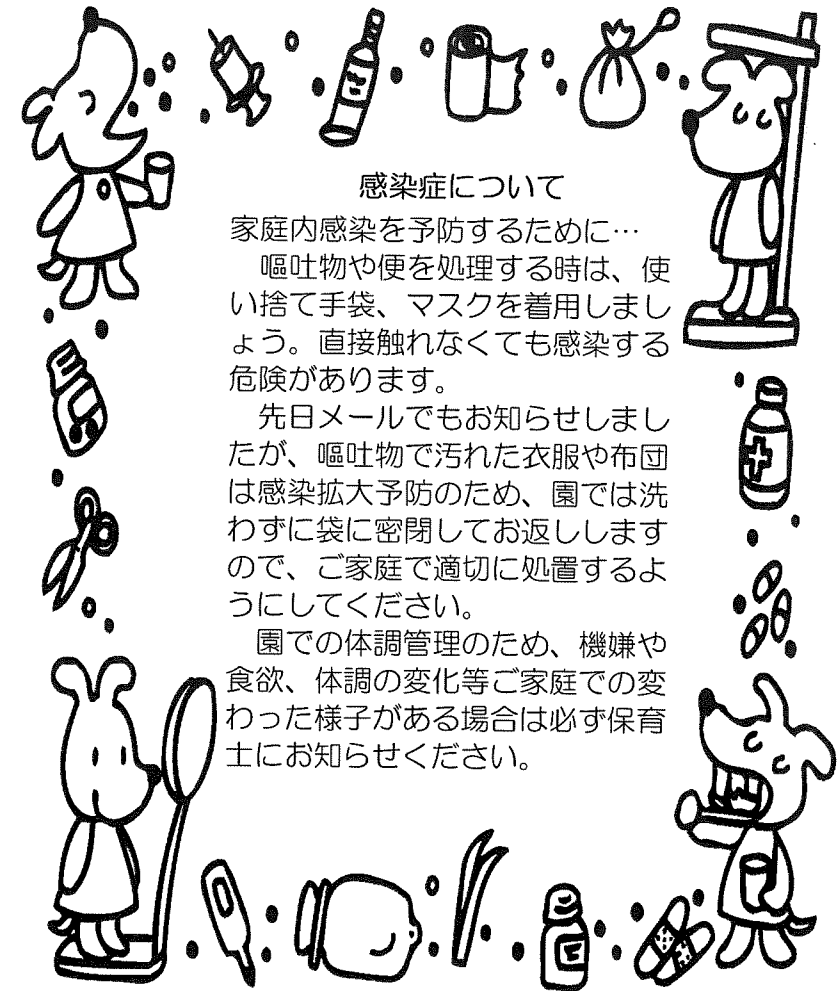 感染症について
家庭内感染を予防するために…
　嘔吐物や便を処理する時は、使
い捨て手袋、マスクを着用しまし
ょう。直接触れなくても感染する
危険があります。
　先日メールでもお知らせしまし
たが、嘔吐物で汚れた衣服や布団
は感染拡大予防のため、園では洗
わずに袋に密閉してお返しします
ので、ご家庭で適切に処置するよ
うにしてください。
　園での体調管理のため、機嫌や
食欲、体調の変化等ご家庭での変
わった様子がある場合は必ず保育
士にお知らせください。